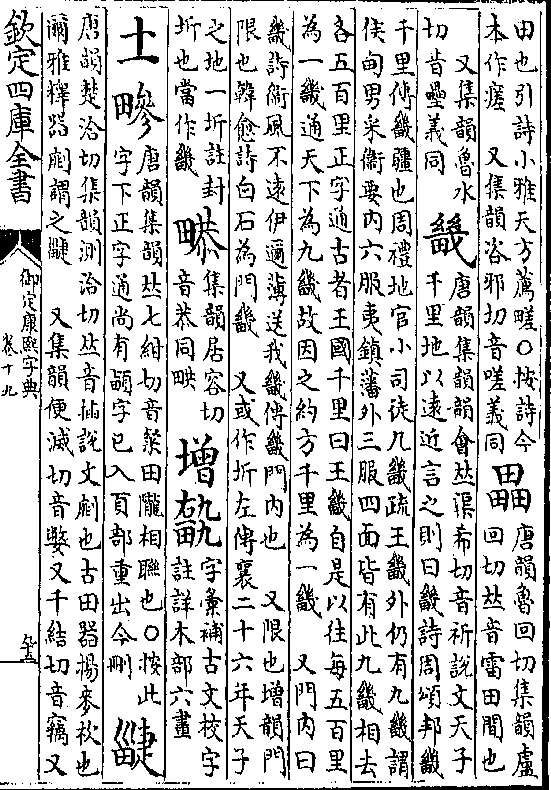 田也引詩小雅天方薦㽨○按詩今
本作瘥　又集韻咨邪切音嗟義同
畾
唐韻魯回切集韻盧
回切𠀤音雷田閒也
又集韻魯水
切音壘義同
畿
唐韻集韻韻會𠀤渠希切音祈說文天子
千里地以遠近言之則曰畿詩周頌邦畿
千里傳畿疆也周禮地官小司徒凡畿疏王畿外仍有九畿謂
侯甸男采衞要內六服夷鎮藩外三服四面皆有此九畿相去
各五百里正字通古者王國千里曰王畿自是以往每五百里
為一畿通天下為九畿故因之約方千里為一畿　又門內曰
畿詩衞風不遠伊邇薄送我畿傳畿門內也　又限也增韻門
限也韓愈詩白石為門畿　又或作圻左傳襄二十六年天子
之地一圻註封
圻也當作畿
集韻居容切
音恭同
增
字彙補古文校字
註詳木部六畫
十一
唐韻集韻𠀤七紺切音田隴相聯也○按此
字下正字通尚有字已入頁部重出今刪
疀
唐韻楚洽切集韻測洽切𠀤音插說文也古田器揚麥杴也
爾雅釋器謂之疀　又集韻便滅切音嫳又千結切音竊又
欽定四庫全書
御定康熙字典
卷十九